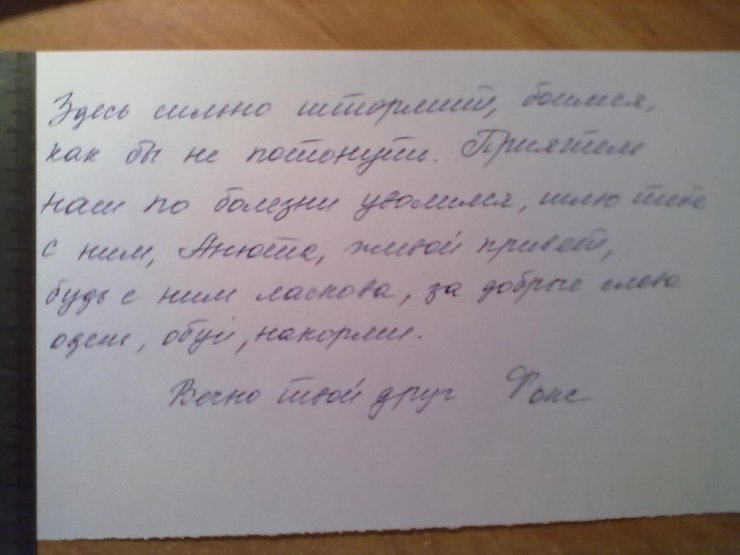 Здесь сильно штормит, боимся,
как бы не потонуть. Приятель
наш по болезни уволился, шлю тебе
с ним, Анюта, живой привет,
будь с ним ласкова, за добрые слова
одень, обуй, накорми.
Вечно твой друг Фокс